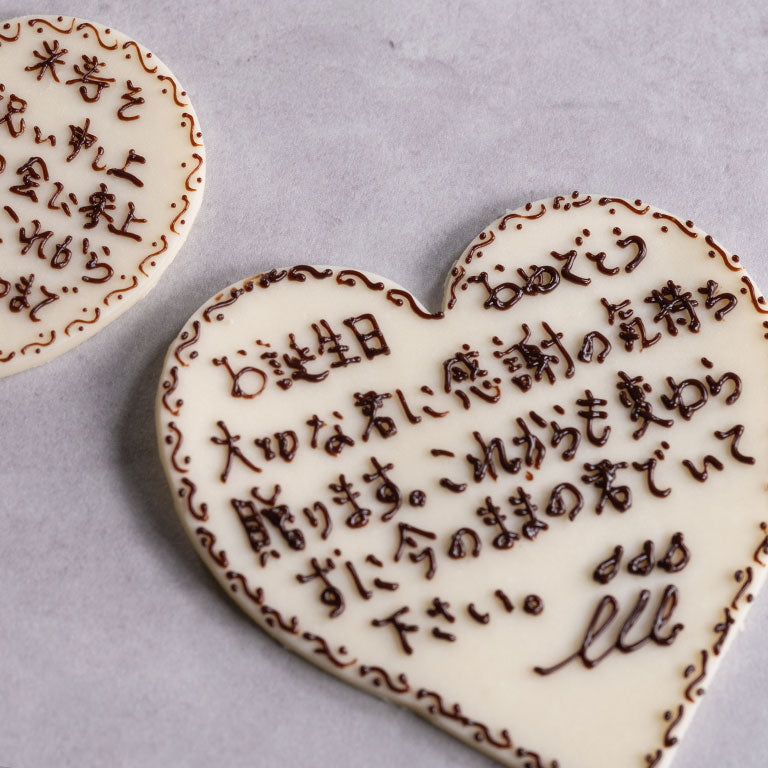 米寿を
祝い申し上
の会に乗上
これから
まで
お誕生日おめでとう
大切な君に感謝の気持ち
贈ります。これからも変わら
ずに今のままの君でいて
下さい。